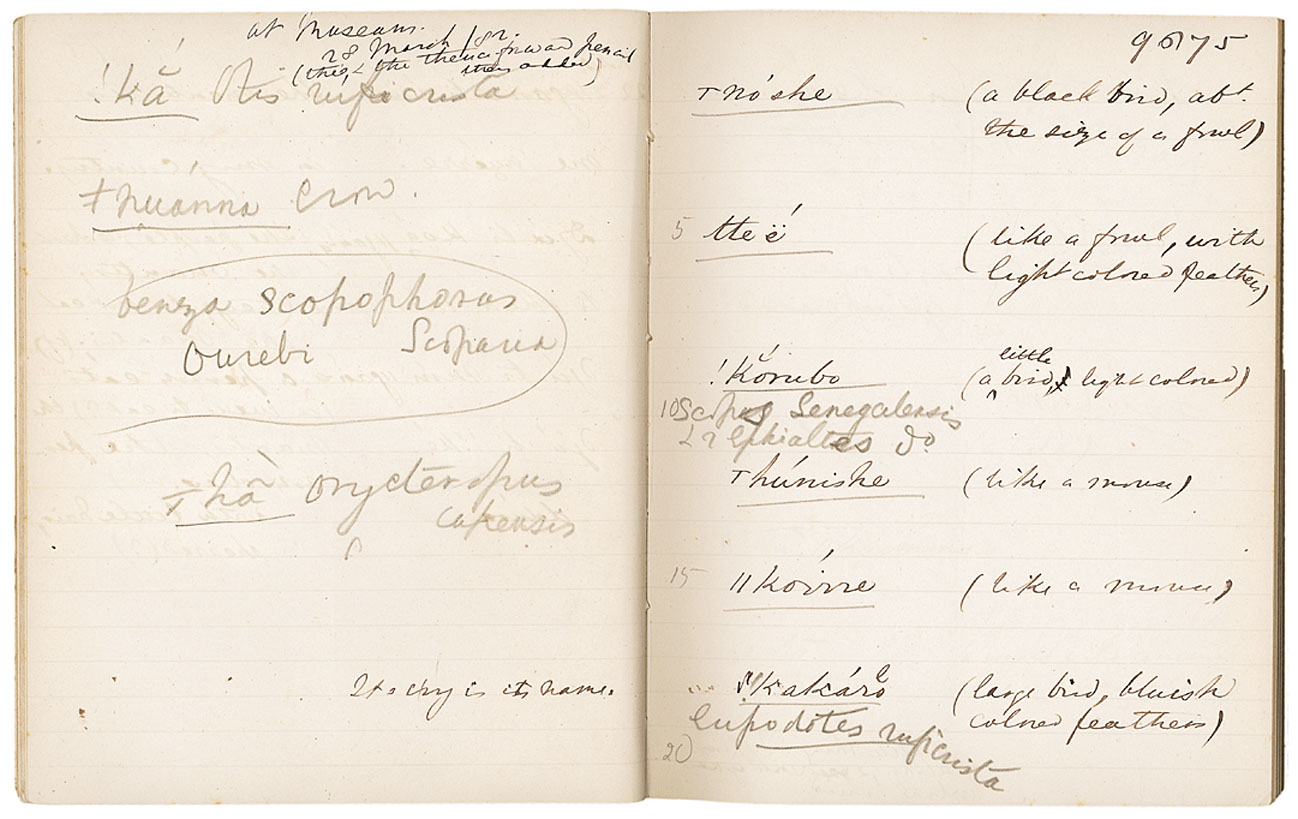 at Museum.
28 March /82.
(this, & the thence forward pencil
then added)
!kā́ Otis ruficrista
ǂhuanna Crow.
scopophorus
Ourebi Scoparia
ǂhā̀ orycteropus
capensis
Its cry is its name.
9675
ꞱnóShe (a black bird, abt.
the size of a fowl)
5 tteë́ (like a fowl, with
light colored feathers)
little
!kŏ́rubo (a bird, light colored)
10 Scops Senegalensis
L 2 Ephialtes do
Ʇhúnishe (like a mouse)
15 ǁkóïrre (like a mouse)
!kakáro (large bird, bluish
colored feathers)
Eupodotes ruficrista
20